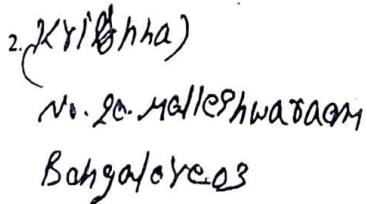 2. (Krishna)
No. 20. Malleshwaraom
Bangalore-03